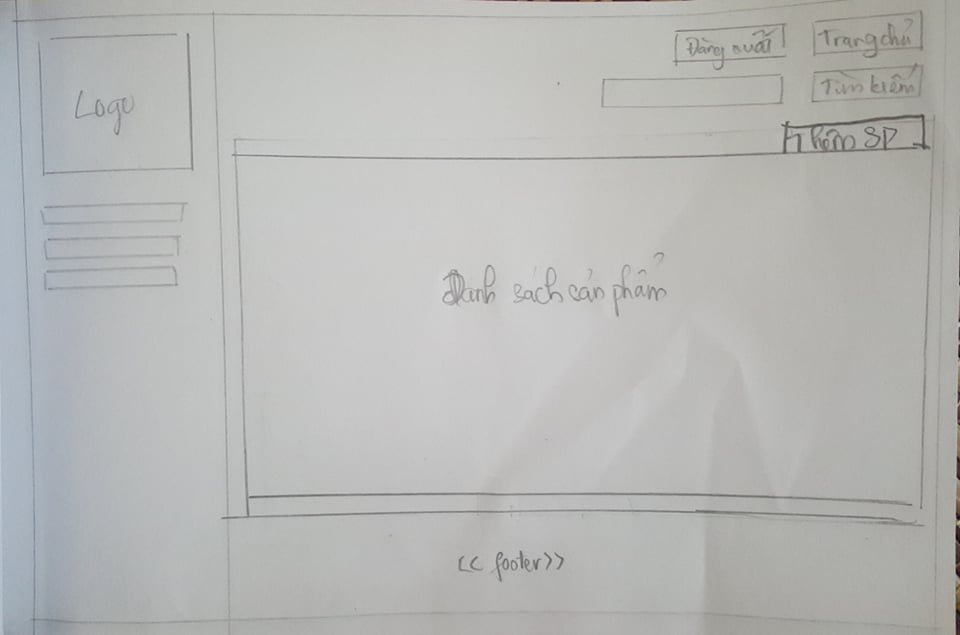 Logo
Đăng xuất
Trang chủ
Tìm kiếm
Thêm SP
Danh sách sản phẩm
<< footer>>